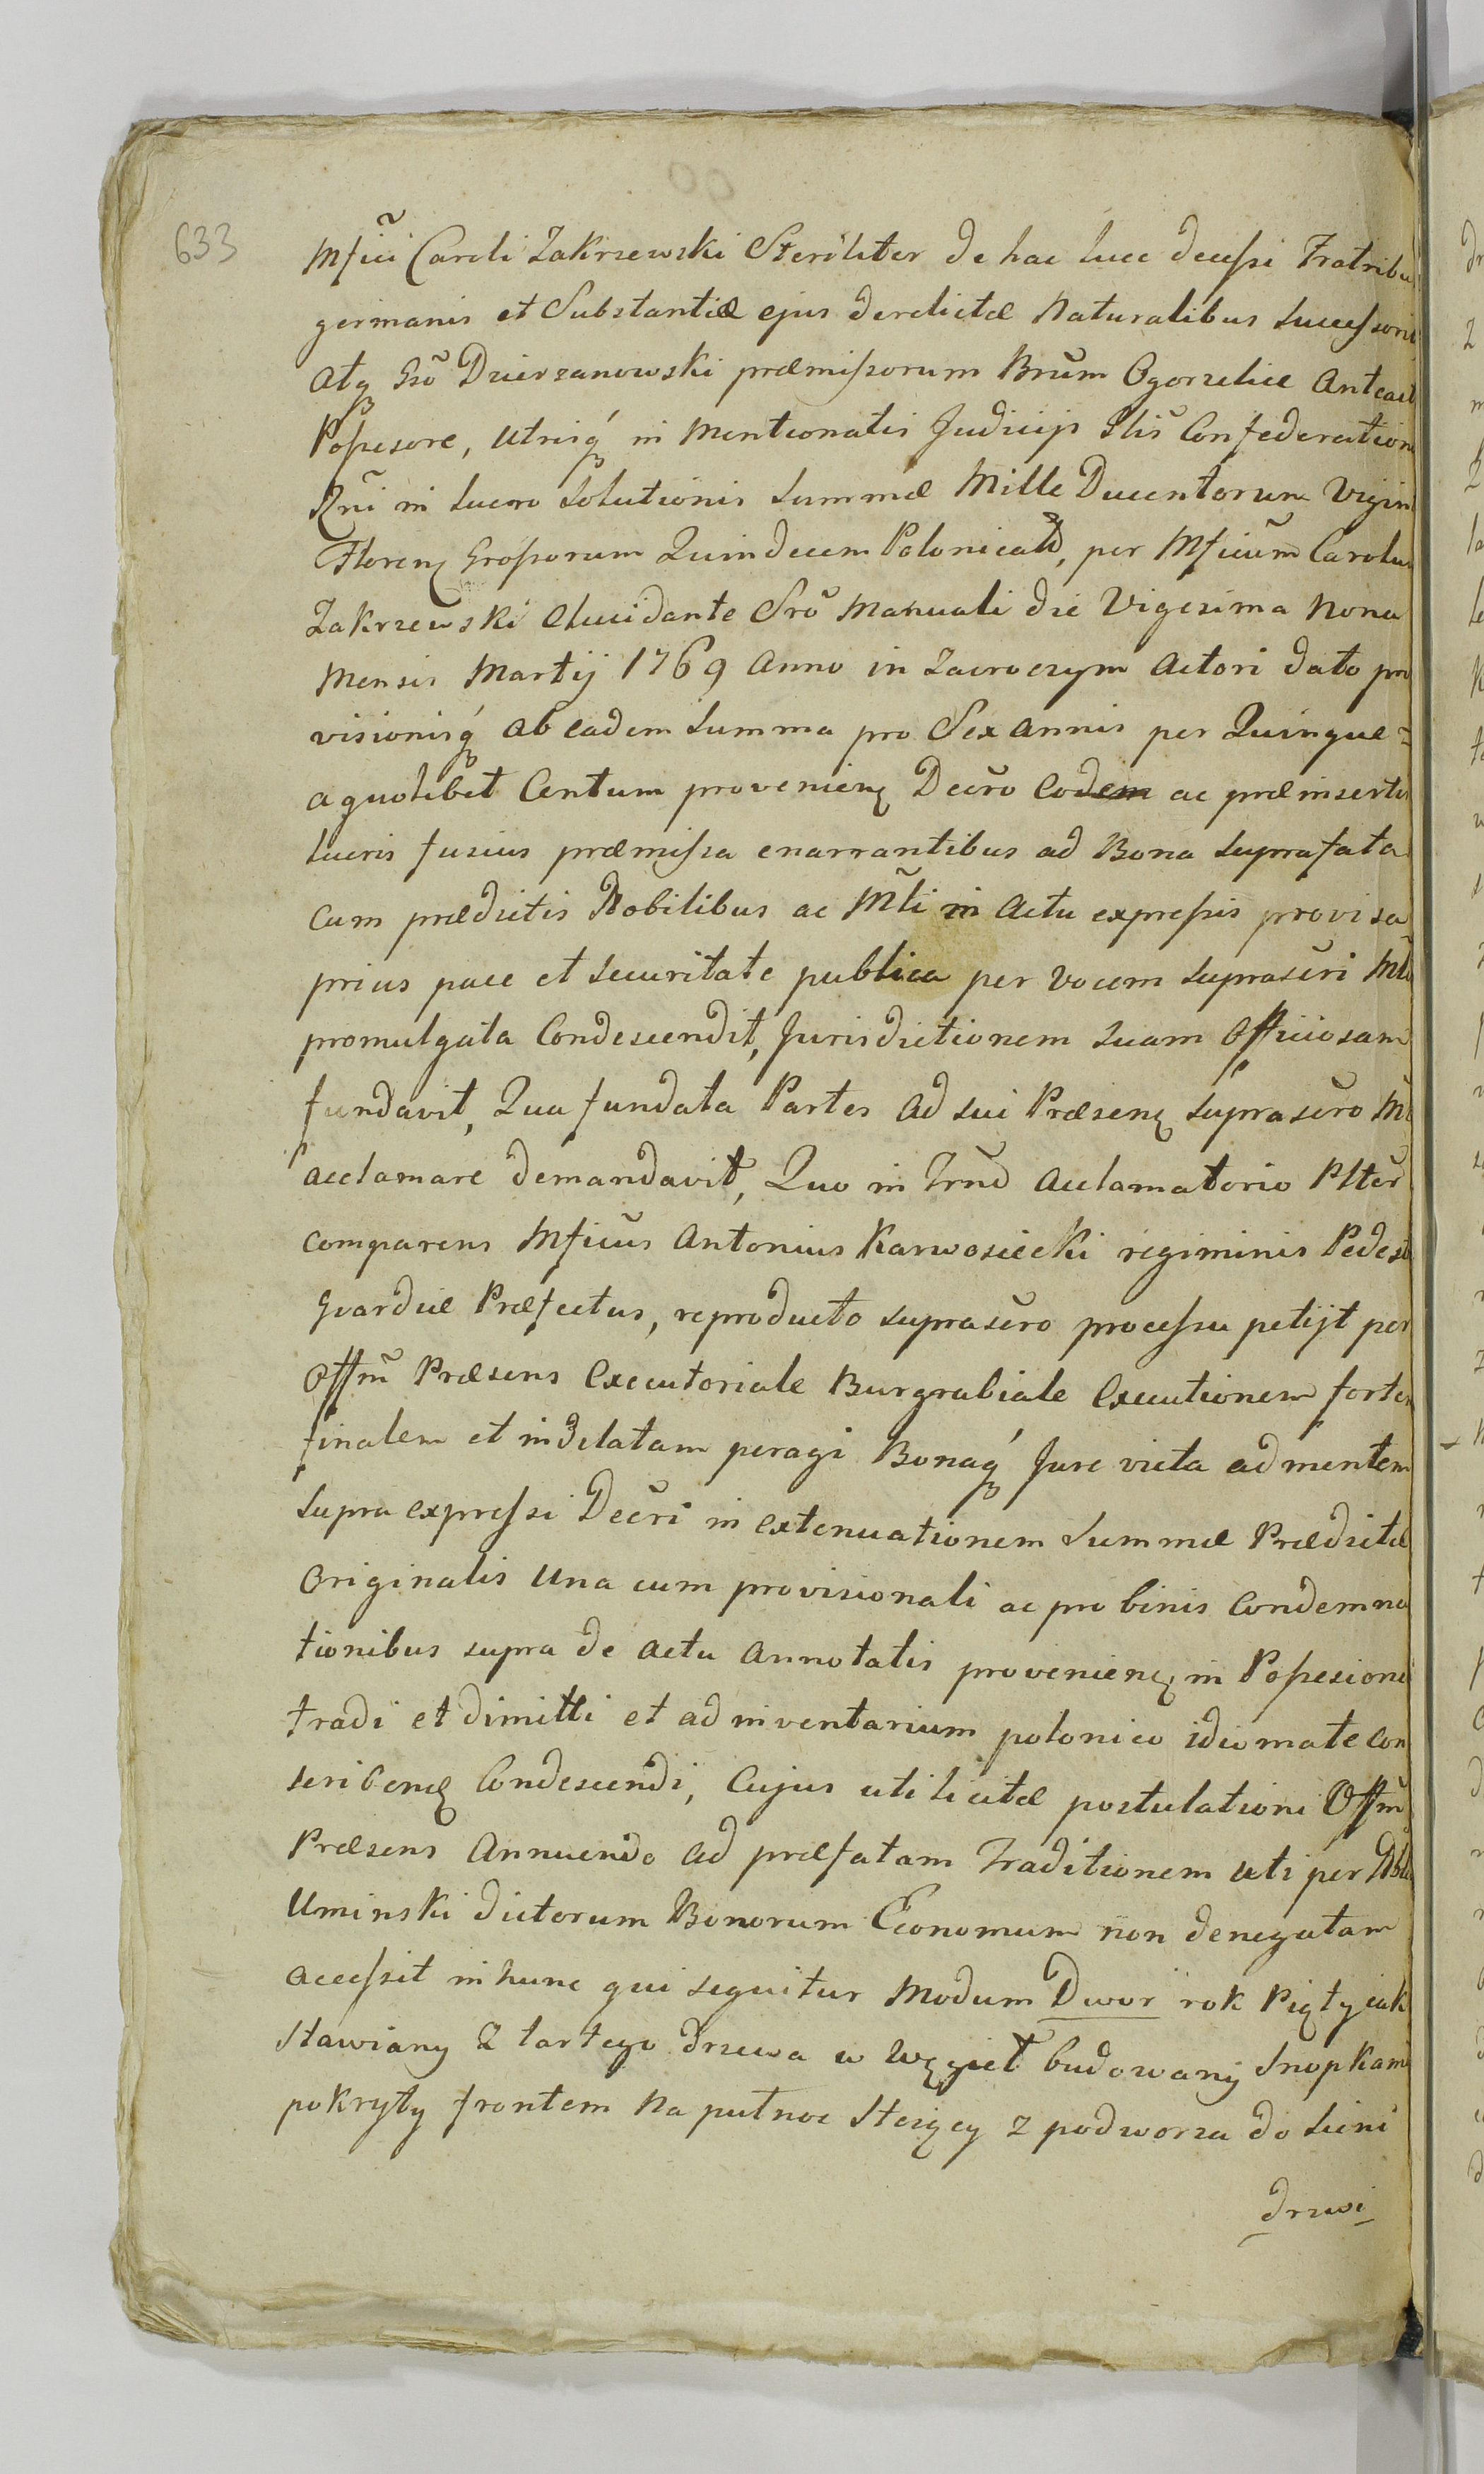 633
Mfici Caroli Zakrzewski Steriliter de hac luce decessi Fratribus
germanis et Substantiæ ejus derelictæ Naturalibus Successoris
atq Gso Dzierzanowski præmissorum Brum Ogorzelice Anteact
Possesore, Utrisq in Mentionatis Judicijs Glis Confederation
Rni in lucro Solutionis Summæ Mille Ducentorum Vigin
Floren Grossorum Quindecem Polonicald, per Mficum Carolu
Zakrzewski elucidante Sro Manuali die Vigesima Nona
Mensis Martij 1769 Anno in Zacroczym Actori dato pro
visionisq ab eadem Summa pro Sex annis per Quinque
a quolibet Centum provenien Decro eodem ac præinsertis
lucris fusius præmissa enarrantibus ad Bona Suprafata
cum prædictis Nobilibus ac Mli in Actu expressis provisa
prius pace et Securitate publica per Vocem Suprascri Mli
promulgata Condescendit, Jurisdictionem Suam Officiosam
fundavit, Qua fundata Partes ad sui Præsen Suprascro M
acclamare demandavit, Quo in Trno Acclamatorio Plter
comparens Mficus Antonius Karwosiecki regiminis Pedest
Gvardiæ Præfectus, reproducto Suprascro processu petijt per
Offm Præsens Executoriale Burgrabiale Executionem forte
finalem et indelatam peragi Bonaq Jure victa ad mentem
Supra expressi Decri in extenuationem Summæ Prædictæ
Originalis Una cum provisionali ac pro binis Condemna
tionibus supra de actu Annotatis provenien in Possesione
tradi et dimitti et ad inventarium polonico idiomate con
scriben Condescendi, Cujus uti licitæ postulationi Offm
Præsens Annuendo ad præfatam Traditionem uti per Nble
Uminski dictorum Bonorum Economum non denegatam
accessit in hunc qui Sequitur Modum Dwor rok Piąty iak
Stawiany z tartego drzewa w węgieł budowany Snopkami
pokryty frontem na pułnoc Stoiący z podworza do Sieni
drzwi